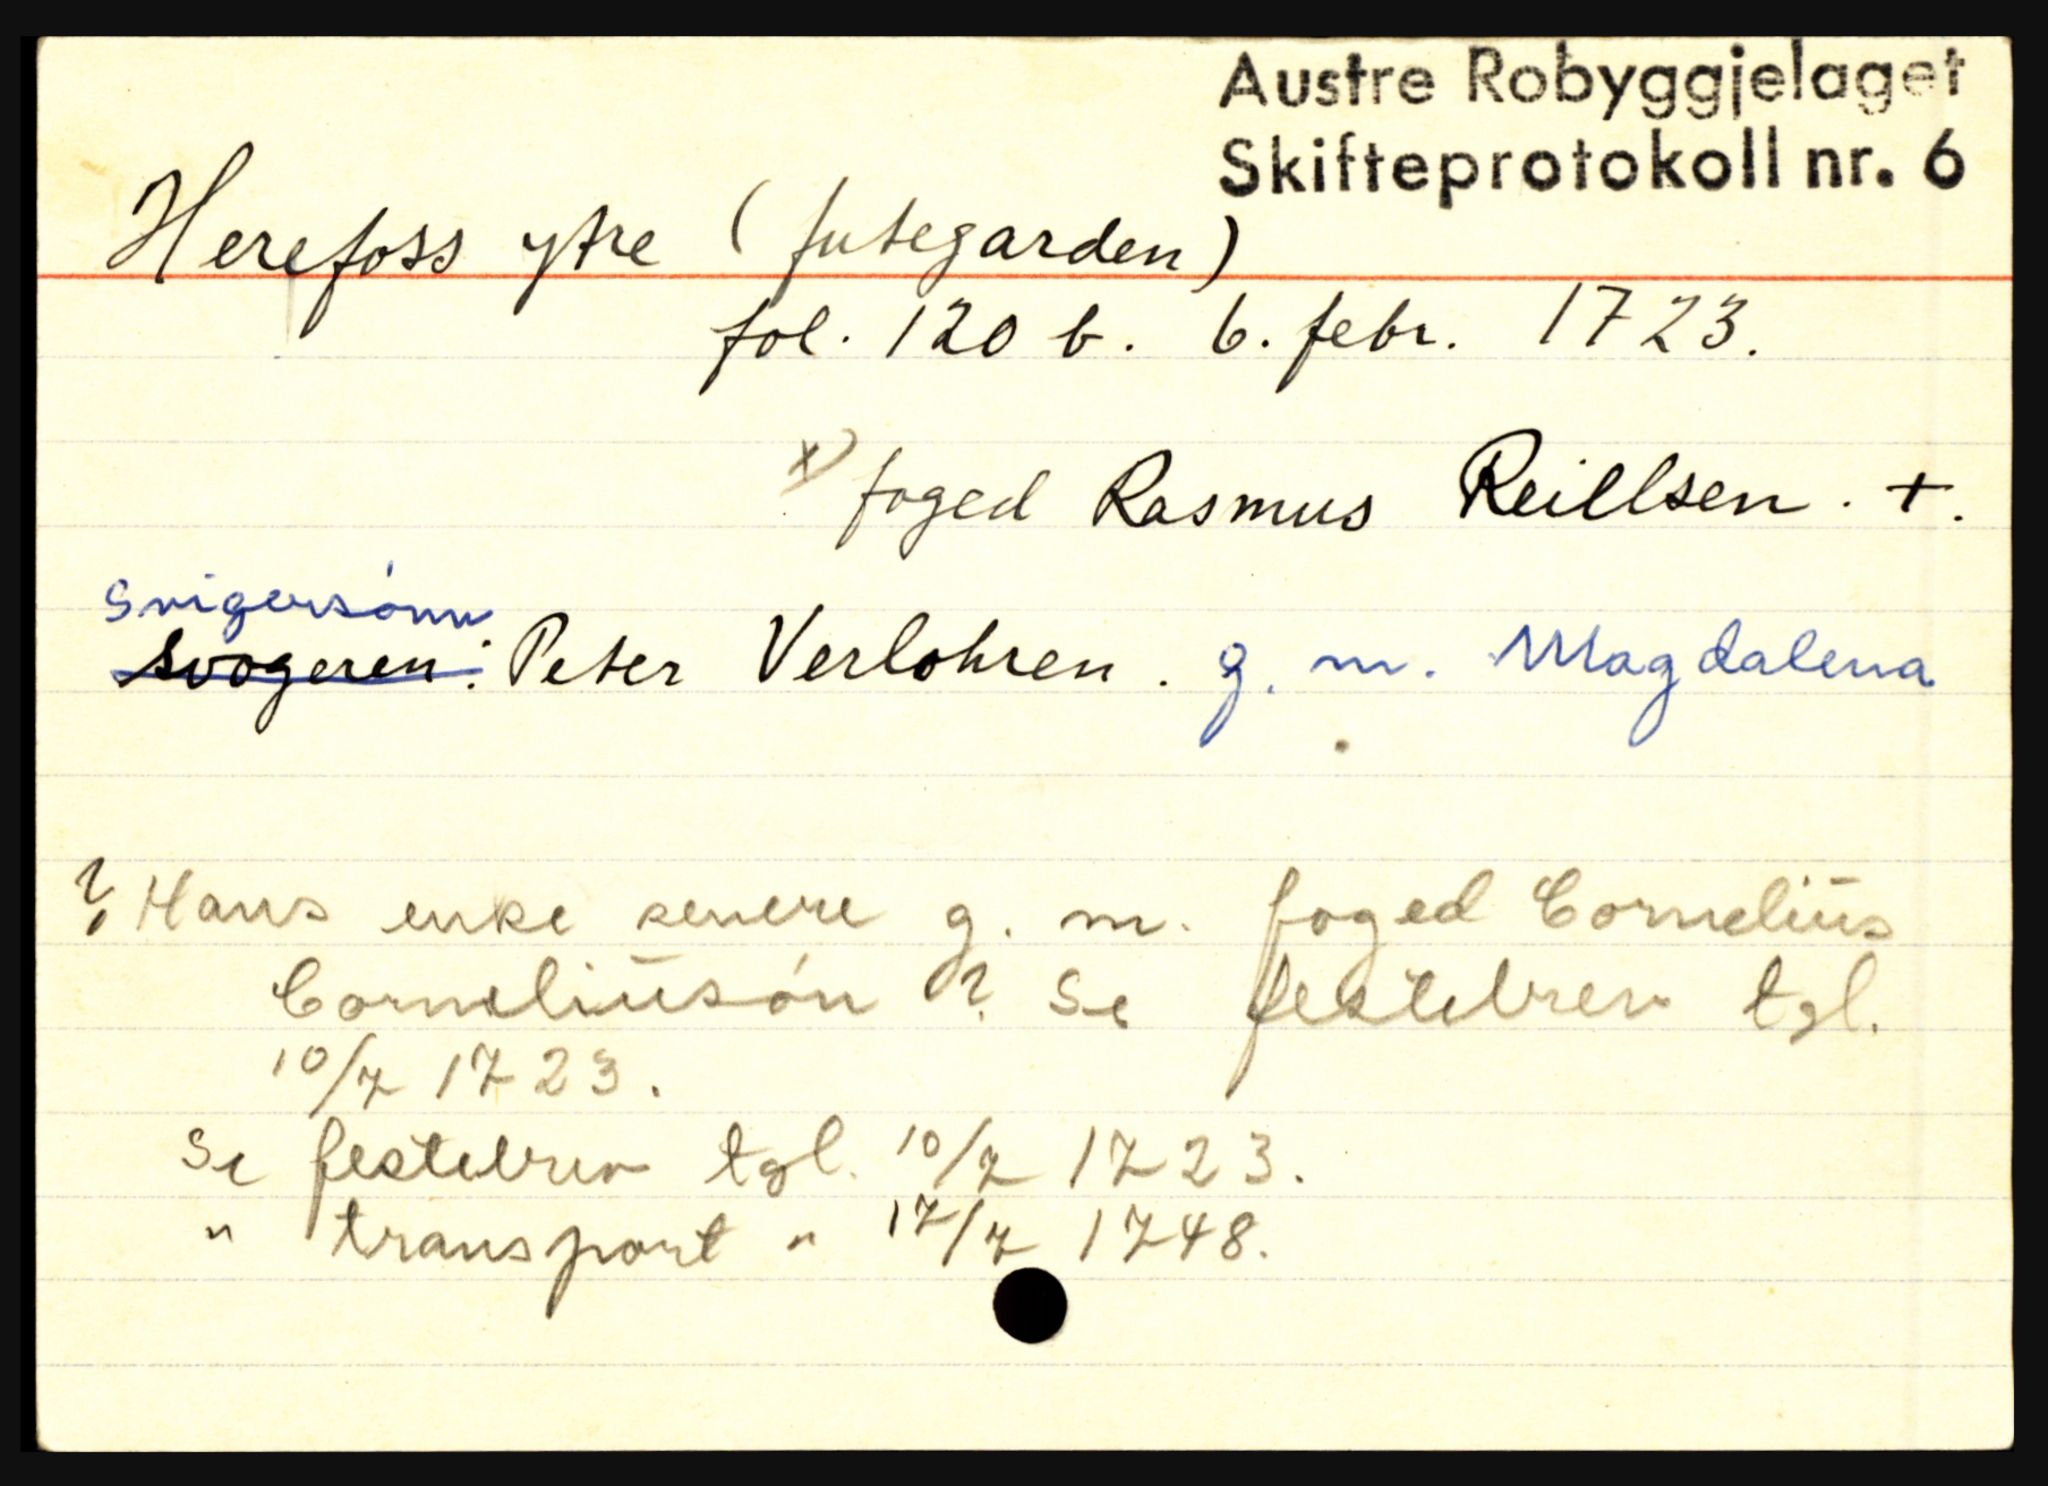 Austre Robyggjelaget
Skifteprotokoll nr. 6
Herefoss ytre (futegarden)
fol. 120 b. 6. febr. 1723.
x) foged Rasmus Reillsen. +.
svigersönn
svogeren: Peter Verlohren. g. m. Magdalena
? Hans enke senere g. m. foged Cornelius
Corneliusön ? Se festebrev tgl.
10/7 1723.
Se festebrev tgl. 10/7 1723.
" transport " 17/7 1748.